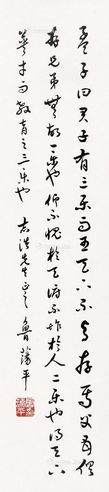 孟子曰君子有三樂而王天下不与存焉父母俱
存兄弟無故一樂也仰不愧於天俯不怍於人二樂也得天下
英才而教育之三樂也 志浩先生正之 魯蕩平